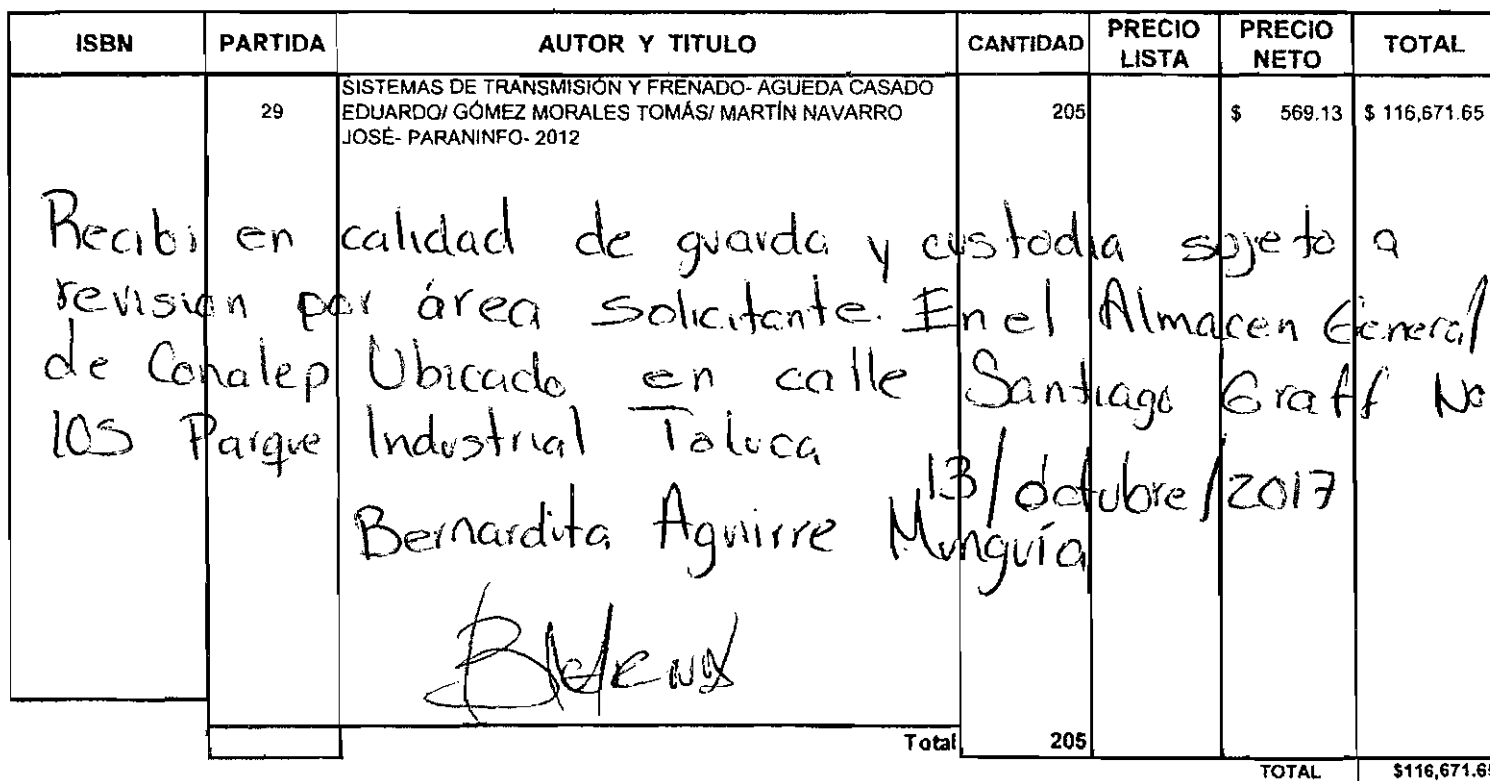 ISBN PARTIDA AUTOR Y TITULO CANTIDAD PRECIO LISTA PRECIO NETO TOTAL
SISTEMAS DE TRANSMISIÓN Y FRENADO- AGUEDA CASADO
29 EDUARDO/ GÓMEZ MORALES TOMÁS/ MARTÍN NAVARRO 205 $ 569.13 $ 116,671.65
JOSÉ- PARANINFO- 2012
Recibi en calidad de guarda y custodia sujeto a
revision por área solicitante. En el Almacen General
de Conalep Ubicado en calle Santiago Graff No
105 Parque Industrial Toluca
13/octubre/2017
Bernardita Aguirre Munguía
Total 205
TOTAL $116,671.65